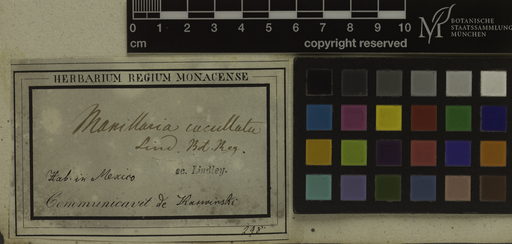 0 1 2 3 4 5 6 7 8 9 10
cm copyright reserved
M BOTANISCHE
STAATSSAMMLUNG
MÜNCHEN
HERBARIUM REGIUM MONACENSE
Maxillaria cucullata
Lind. Bot. Reg.
sc. Lindley.
Hab. in Mexico
Communicavit de Karwinski
248